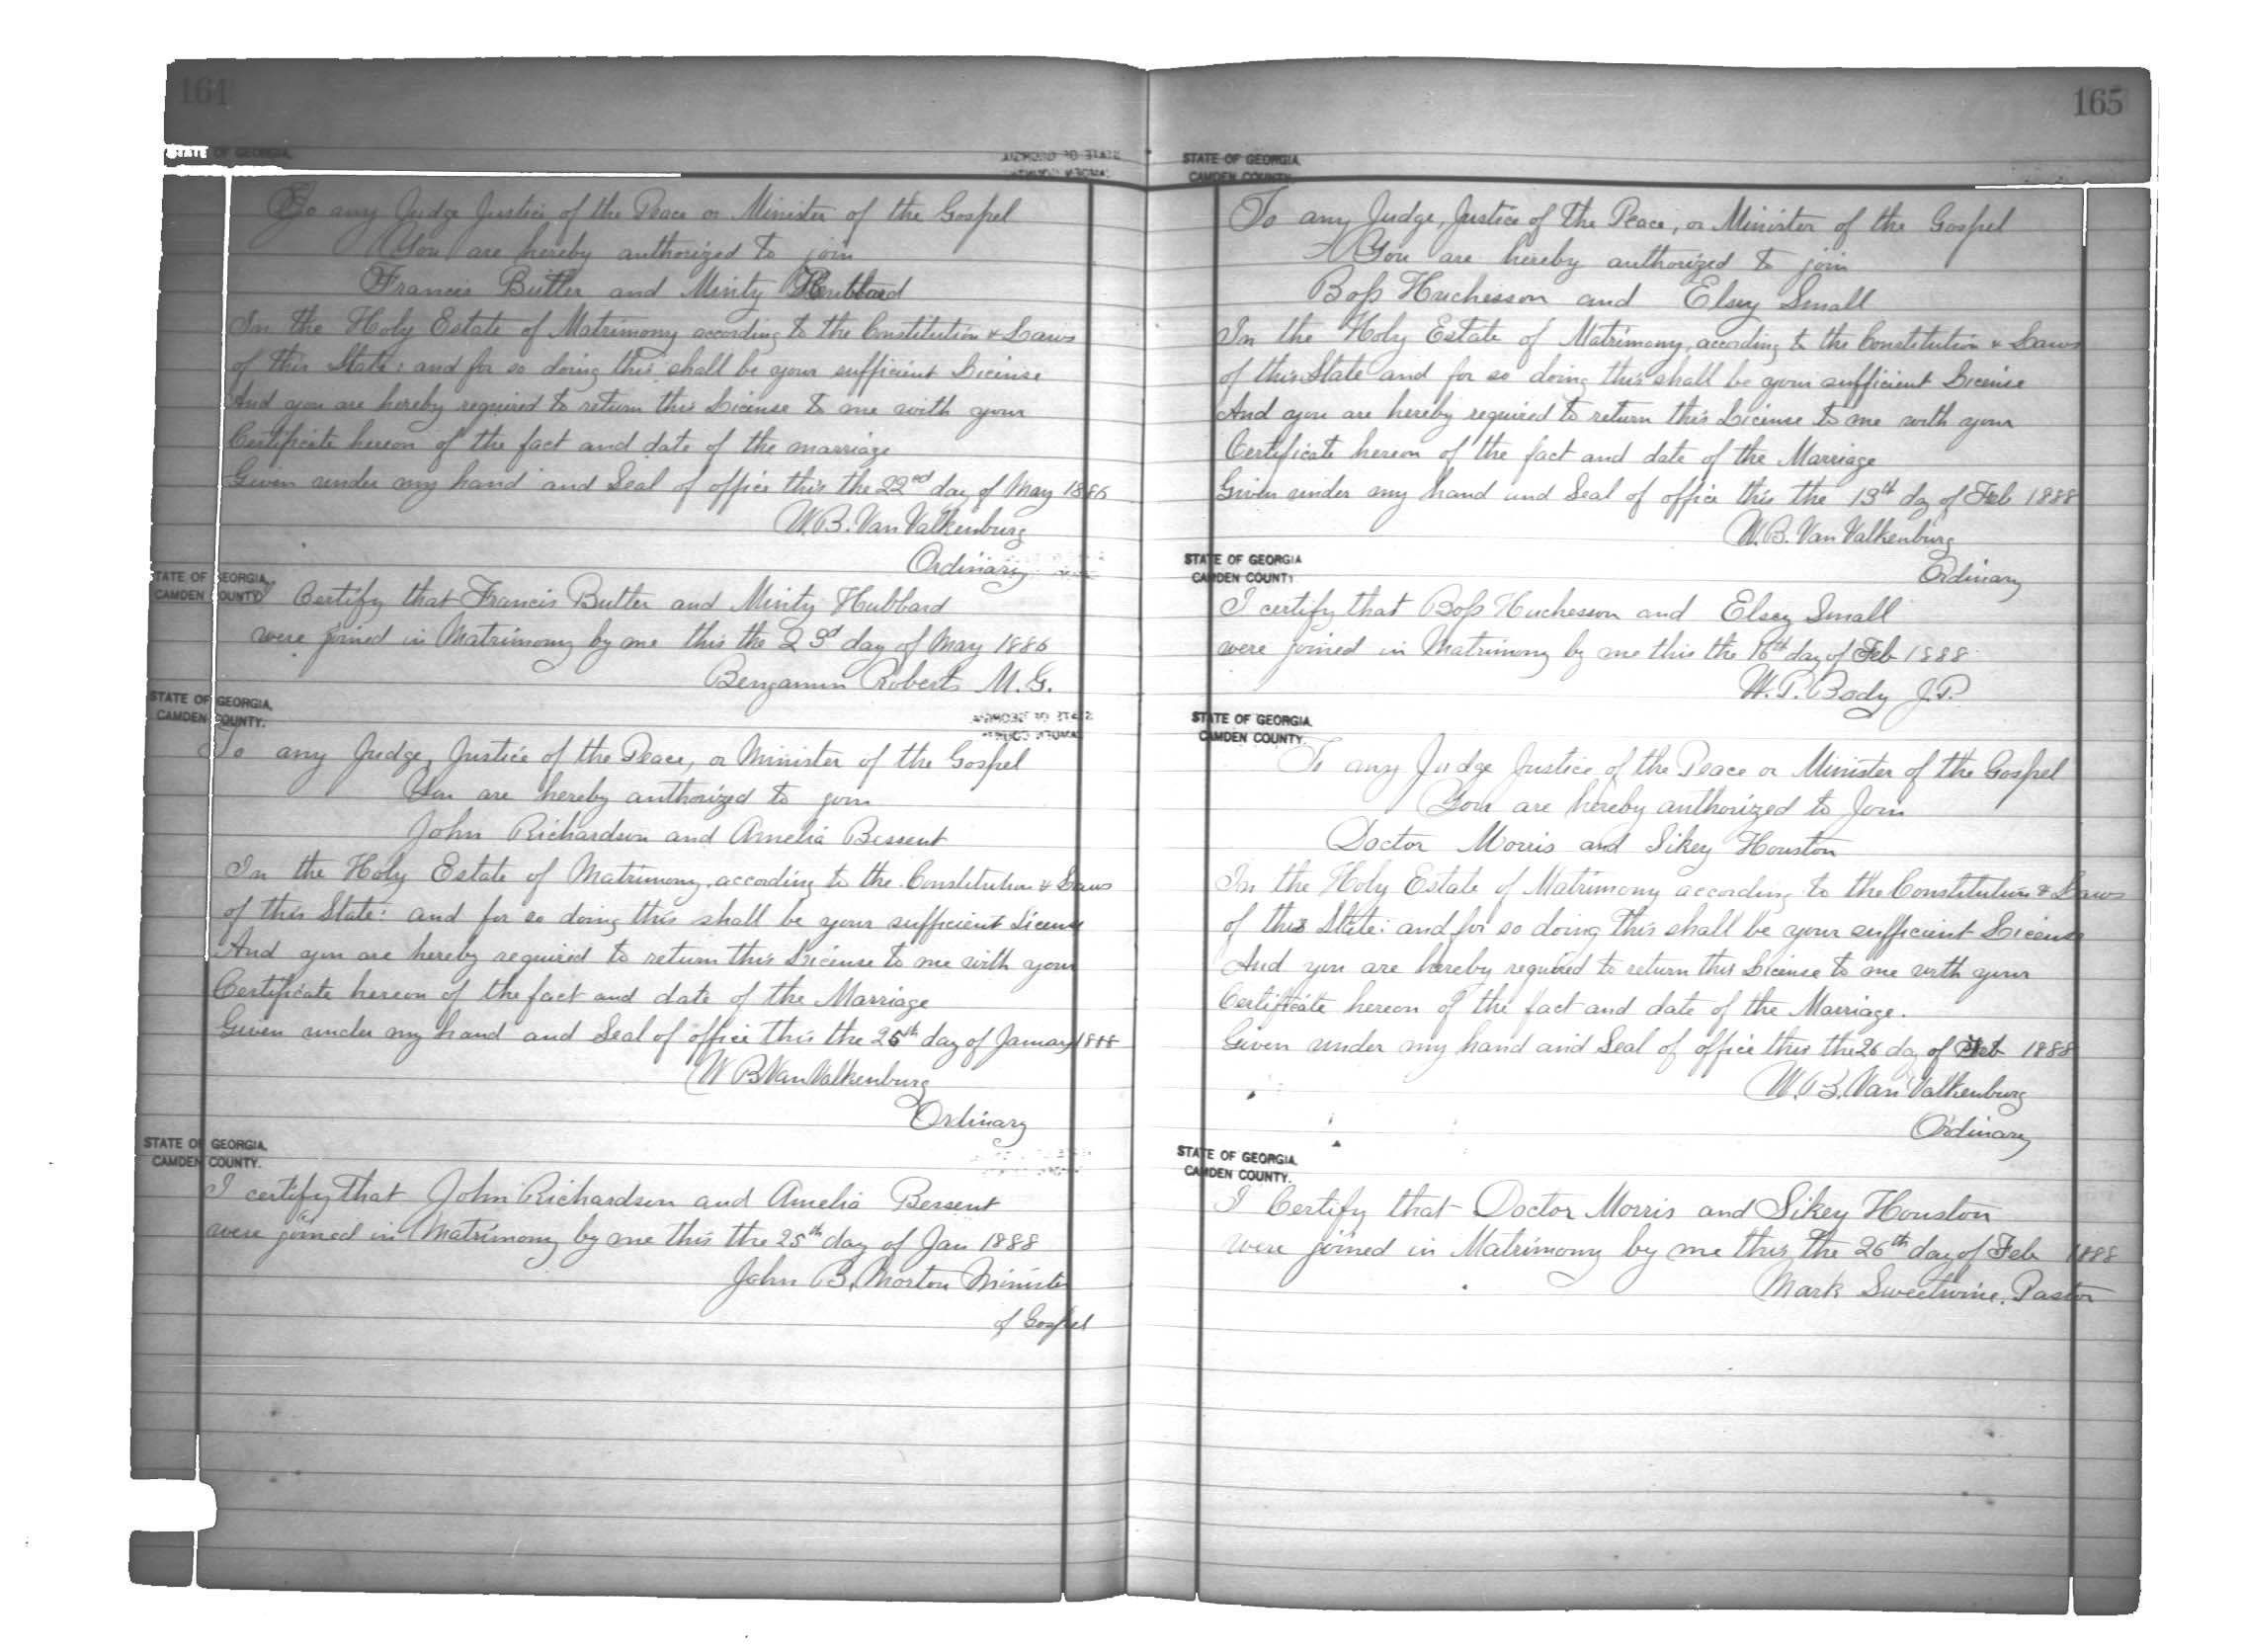 164
STATE OF GEORGIA,
To any Judge Justice of the Peace or Minister of the Gospel
You are hereby authorized to join
Francis Butler and Minty Hubbard
In the Holy Estate of Matrimony according to the Constitution & Laws
of this State: and for so doing this shall be your sufficient License
And you are hereby required to return this License to me with your
Certificate hereon of the fact and date of the marriage
Given under my hand and Seal of office this the 22nd day of May 1886
W. B. Van Valkenburg
Ordinary
STATE OF GEORGIA,
CAMDEN COUNTY
Certify that Francis Butler and Minty Hubbard
were joined in Matrimony by me this the 23d day of May 1886
Benjamin Roberts M. G.
STATE OF GEORGIA,
CAMDEN COUNTY.
To any Judge, Justice of the Peace, or Minister of the Gospel
You are hereby authorized to join
John Richardson and Amelia Bessent
In the Holy Estate of Matrimony, according to the Constitution & Laws
of this State: and for so doing this shall be your sufficient License
And you are hereby required to return this License to me with your
Certificate hereon of the fact and date of the Marriage
Given under my hand and Seal of office this the 25th day of January 1888
W B Van Valkenburg
Ordinary
STATE OF GEORGIA,
CAMDEN COUNTY.
I certify that John Richardson and Amelia Bessent
were joined in Matrimony by me this the 25th day of Jan 1888
John B. Morton Minister
of Gospel
165
STATE OF GEORGIA,
CAMDEN COUNTY.
To any Judge, Justice of the Peace, or Minister of the Gospel
You are hereby authorized to join
Boss Huchesson and Elsey Small
In the Holy Estate of Matrimony, according to the Constitution & Laws
of this State and for so doing this shall be your sufficient License
And you are hereby required to return this License to me with your
Certificate hereon of the fact and date of the Marriage
Given under my hand and Seal of office this the 13th day of Feb 1888
W. B. Van Valkenburg
Ordinary
STATE OF GEORGIA
CAMDEN COUNTY
I certify that Boss Huchesson and Elsey Small
were joined in Matrimony by me this the 16th day of Feb 1888
W. P. Body J. P.
STATE OF GEORGIA,
CAMDEN COUNTY.
To any Judge Justice of the Peace or Minister of the Gospel
You are hereby authorized to Join
Doctor Morris and Sikey Houston
In the Holy Estate of Matrimony according to the Constitution & Laws
of this State: and for so doing this shall be your sufficient License
And you are hereby required to return this License to me with your
Certificate hereon of the fact and date of the Marriage.
Given under my hand and Seal of office this the 26 day of Feb 1888
W. B. Van Valkenburg
Ordinary
STATE OF GEORGIA,
CAMDEN COUNTY.
I Certify that Doctor Morris and Sikey Houston
were joined in Matrimony by me this the 26th day of Feb 1888
Mark Sweetwine, Pastor